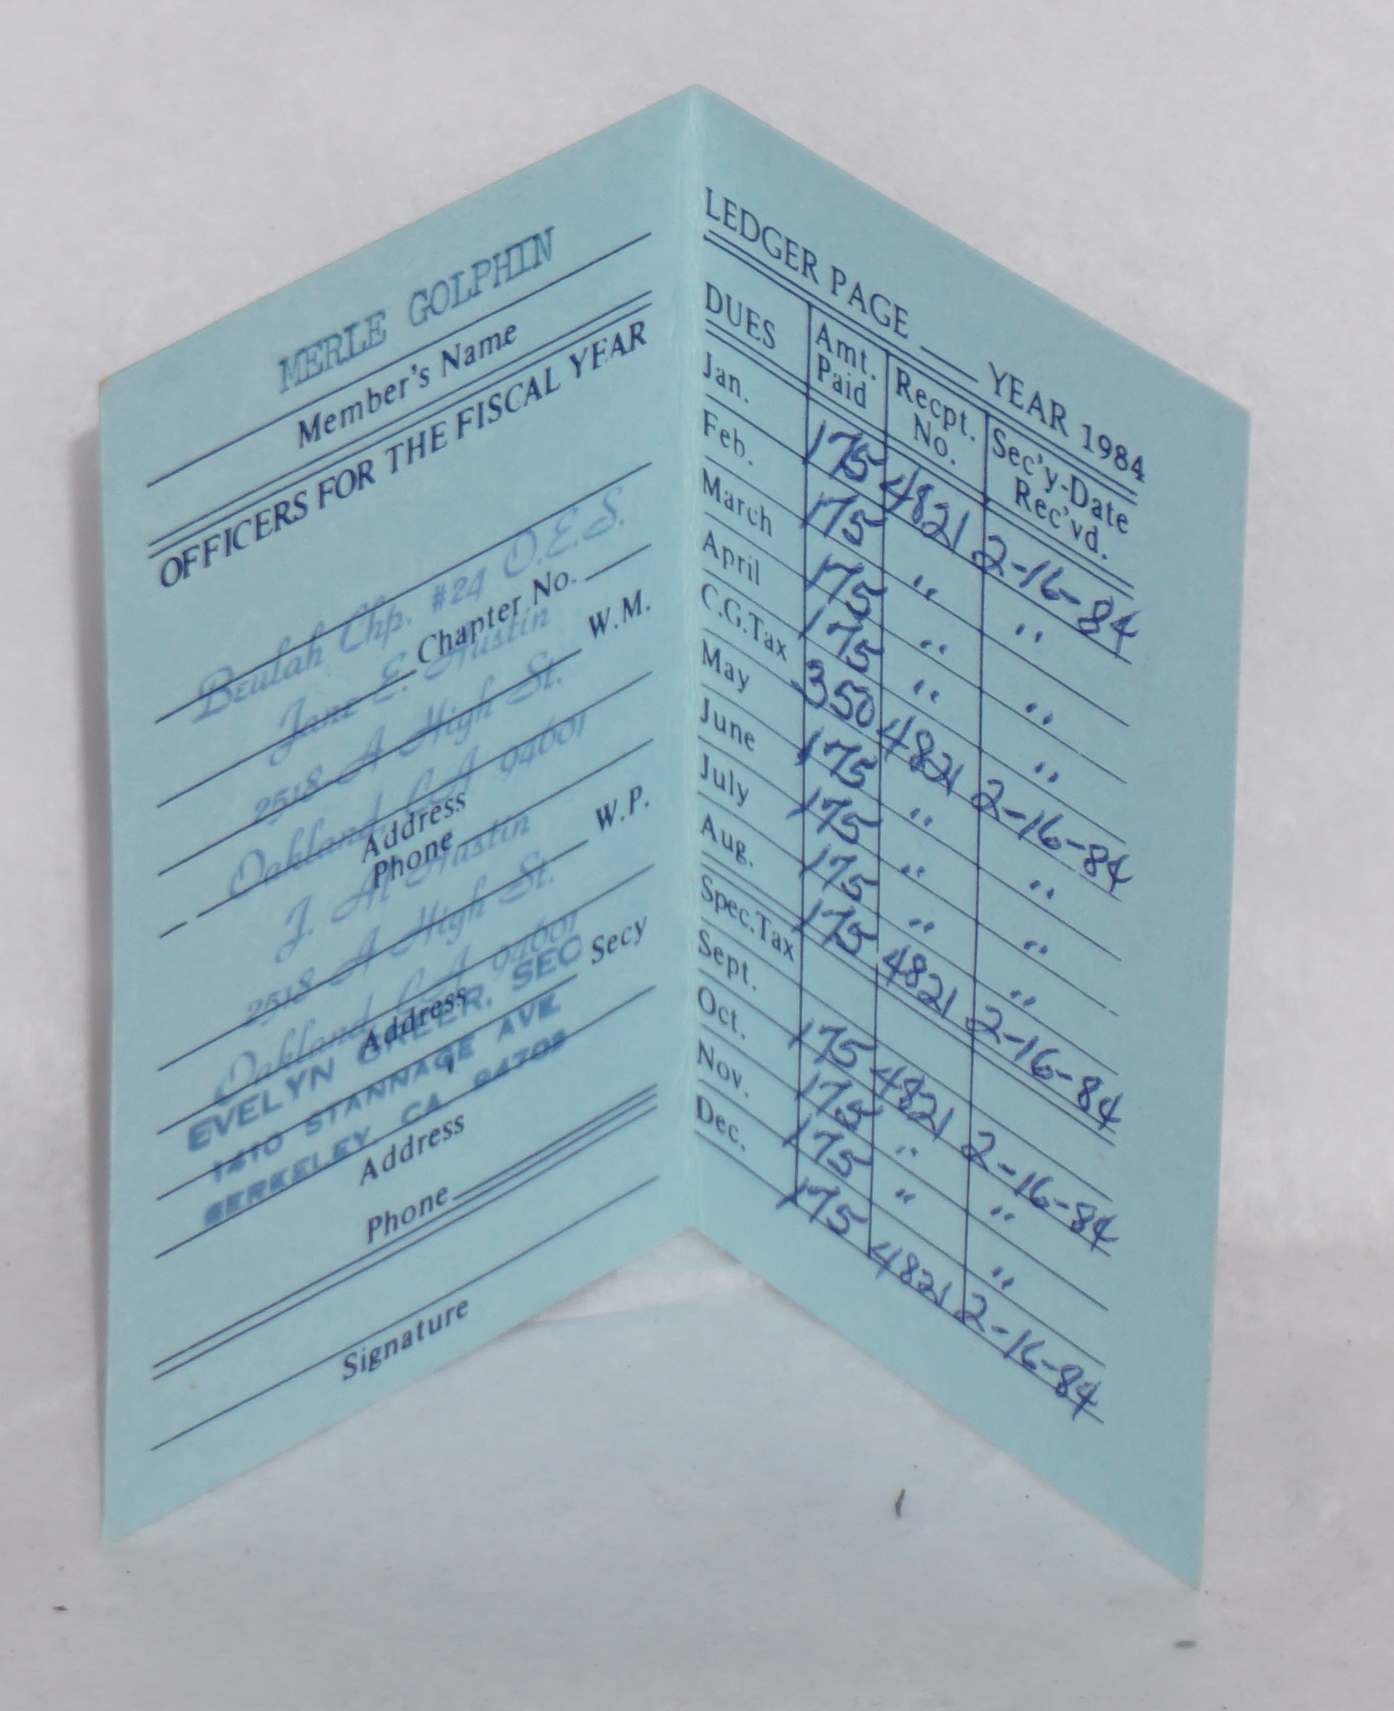 MERLE GOLPHIN
Member's Name
OFFICERS FOR THE FISCAL YEAR
Beulah Chp. #24 O.E.S.
Chapter No.
Jane E. Austin W.M.
2518 A High St.
Oakland CA 94601
Address
Phone
J. Al Austin W.P.
2518 A High St.
Oakland CA 94601
Address
EVELYN GREER, SEC Secy
1410 STANNAGE AVE
BERKELEY CA 94702
Address
Phone
Signature
LEDGER PAGE ___ YEAR 1984
DUES Amt. Paid Recpt. No. Sec'y-Date Rec'vd.
Jan. 175 4821 2-16-84
Feb. 175 " "
March 175 " "
April 175 " "
C.G.Tax 350 4821 2-16-84
May 175 " "
June 175 " "
July 175 " "
Aug. 175 4821 2-16-84
Spec.Tax
Sept. 175 4821 2-16-84
Oct. 175 " "
Nov. 175 " "
Dec. 175 4821 2-16-84